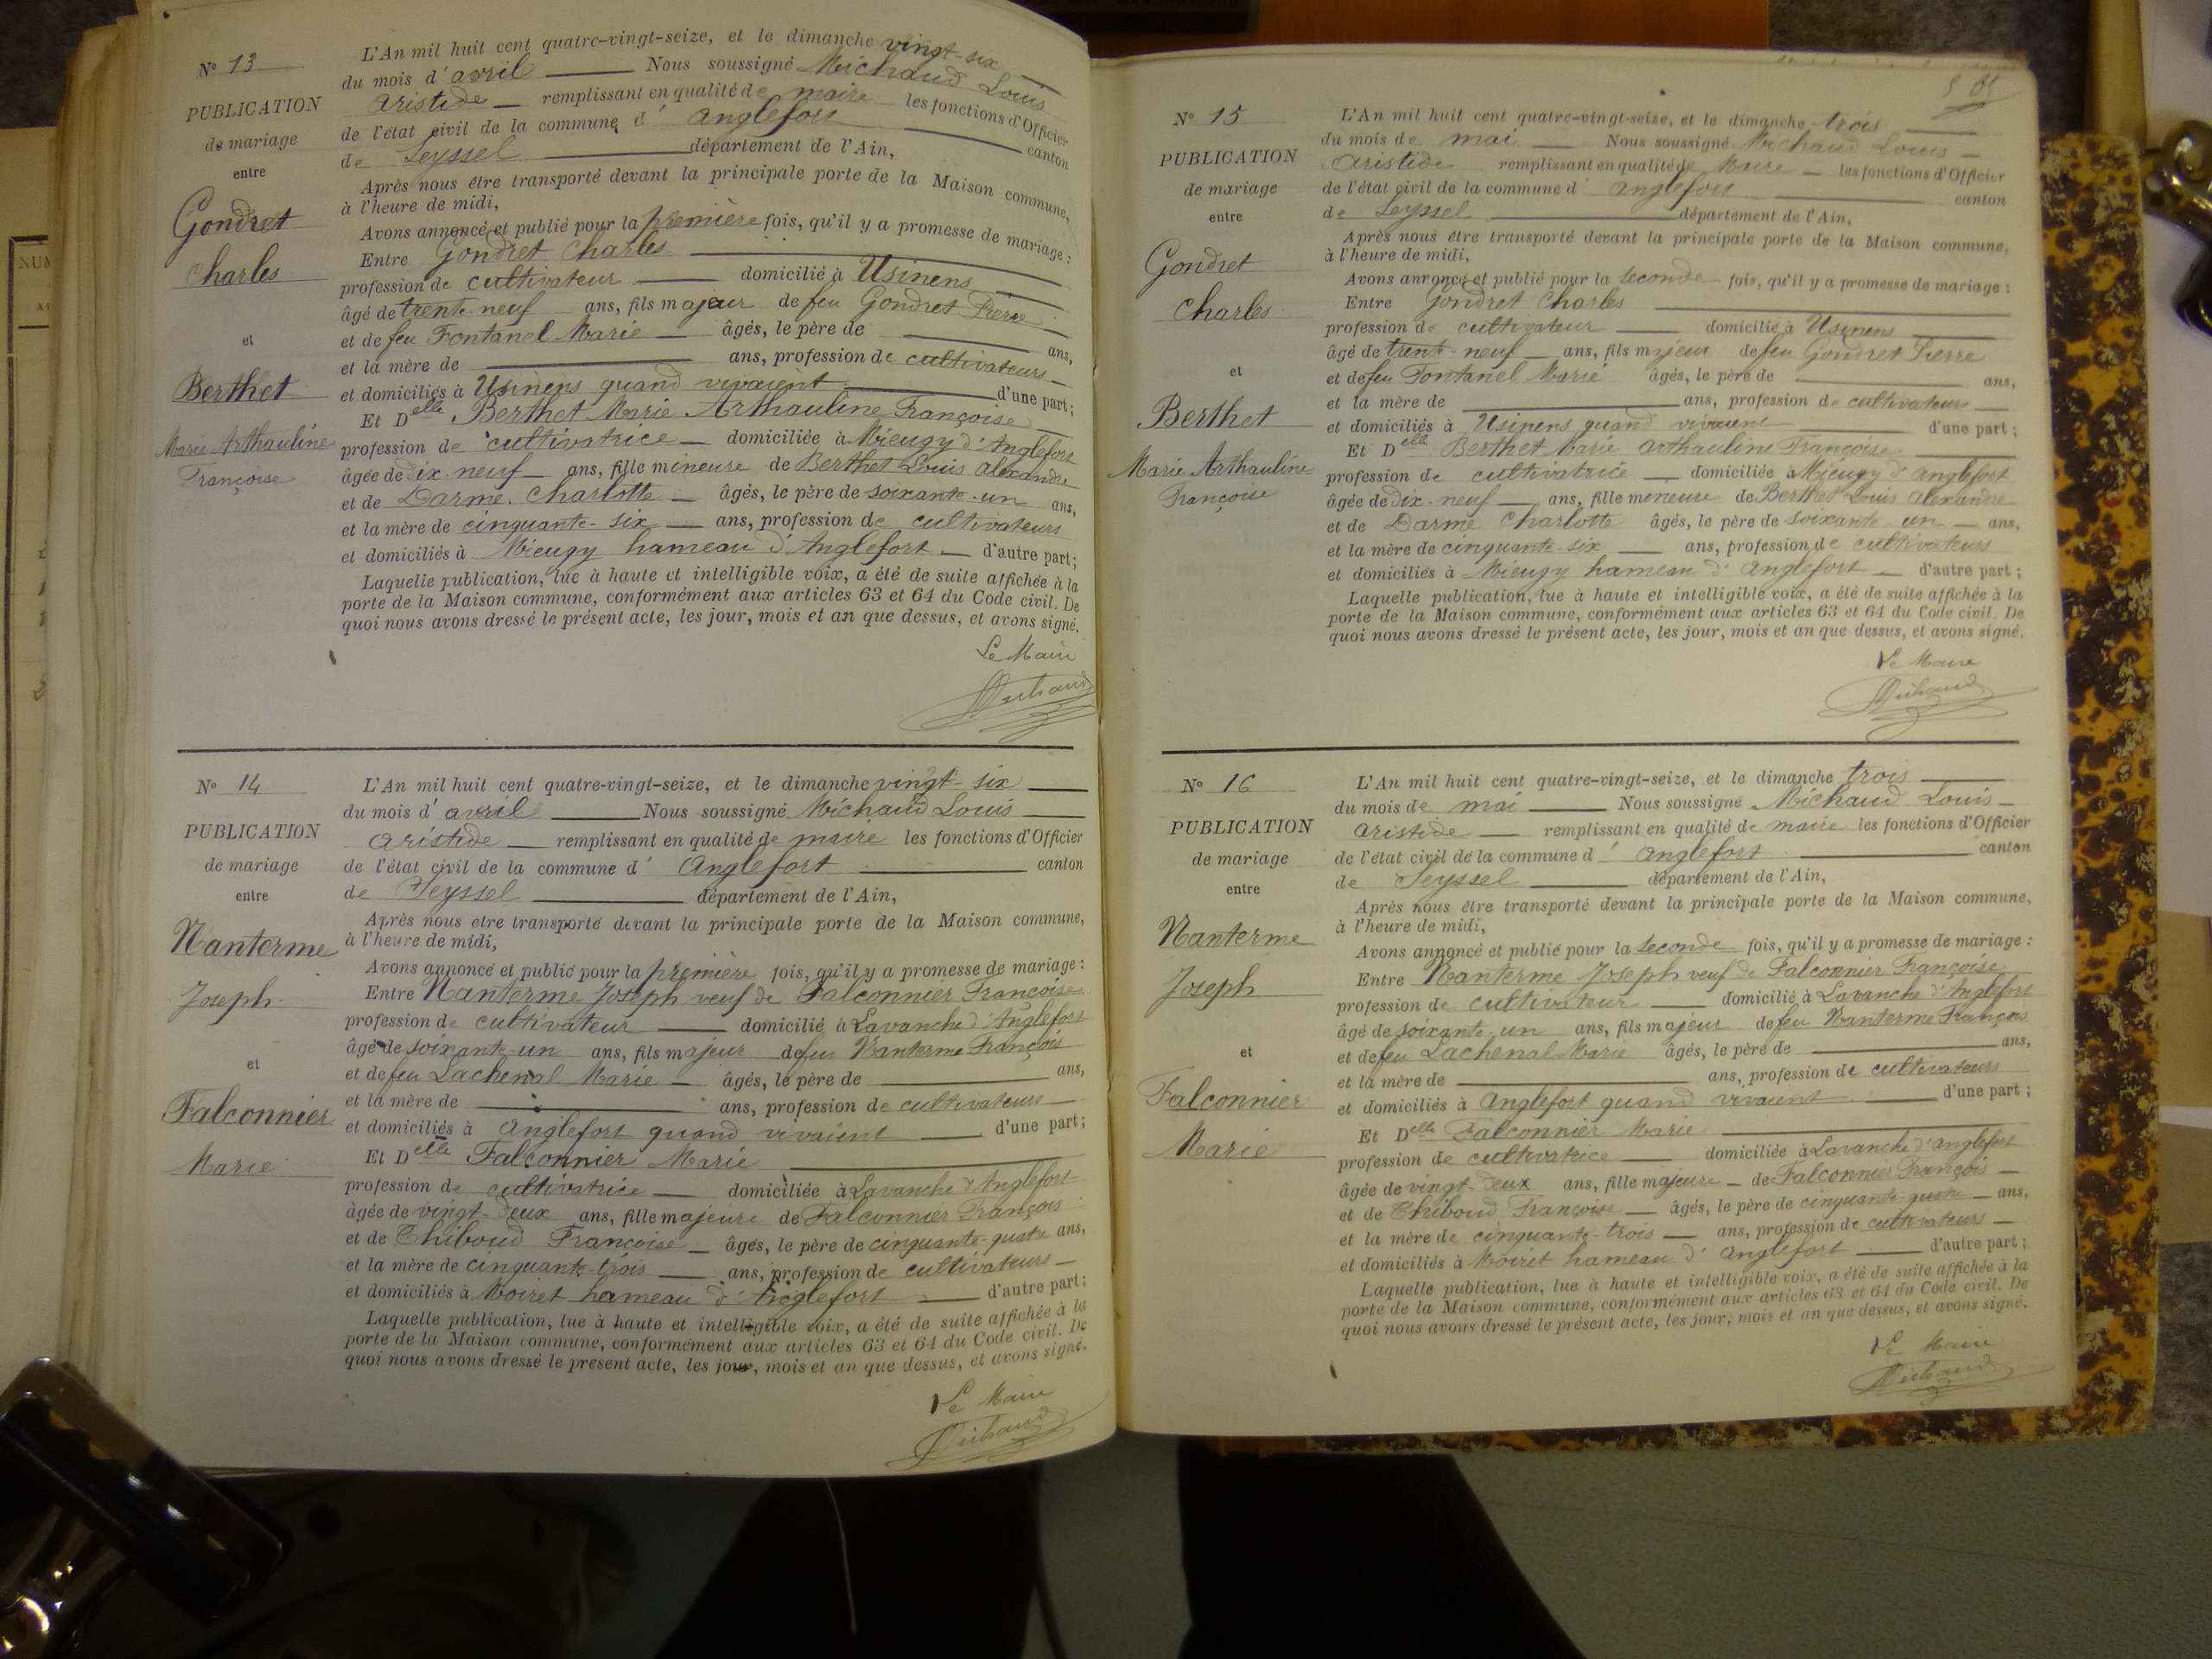 Nº 13
PUBLICATION
de mariage
entre
Gondret
Charles
et
Berthet
Marie Arthauline
Françoise
L'An mil huit cent quatre-vingt-seize, et le dimanche vingt-six
du mois d'avril Nous soussigné Michaud Louis
Aristide remplissant en qualité de maire les fonctions d'Officier
de l'état civil de la commune d' Anglefort canton
de Seyssel département de l'Ain,
Après nous être transporté devant la principale porte de la Maison commune,
à l'heure de midi,
Avons annoncé et publié pour la première fois, qu'il y a promesse de mariage :
Entre Gondret Charles
profession de cultivateur domicilié à Usinens
âgé de trente-neuf ans, fils majeur de feu Gondret Pierre
et de feu Fontanel Marie âgés, le père de ans,
et la mère de ans, profession de cultivateurs
et domiciliés à Usinens quand vivaient d'une part ;
Et Delle Berthet Marie Arthauline Françoise
profession de cultivatrice domiciliée à Mieugy d'Anglefort
âgée de dix-neuf ans, fille mineure de Berthet Louis Alexandre
et de Darme Charlotte âgés, le père de soixante-un ans,
et la mère de cinquante-six ans, profession de cultivateurs
et domiciliés à Mieugy hameau d'Anglefort d'autre part ;
Laquelle publication, lue à haute et intelligible voix, a été de suite affichée à la
porte de la Maison commune, conformément aux articles 63 et 64 du Code civil. De
quoi nous avons dressé le présent acte, les jour, mois et an que dessus, et avons signé.
Le Maire
Michaud
Nº 14
PUBLICATION
de mariage
entre
Nanterme
Joseph
et
Falconnier
Marie
L'An mil huit cent quatre-vingt-seize, et le dimanche vingt-six
du mois d'avril Nous soussigné Michaud Louis
Aristide remplissant en qualité de maire les fonctions d'Officier
de l'état civil de la commune d' Anglefort canton
de Seyssel département de l'Ain,
Après nous être transporté devant la principale porte de la Maison commune,
à l'heure de midi,
Avons annoncé et publié pour la première fois, qu'il y a promesse de mariage :
Entre Nanterme Joseph veuf de Falconnier Françoise
profession de cultivateur domicilié à Lavanche d'Anglefort
âgé de soixante-un ans, fils majeur de feu Nanterme François
et de feu Lachenal Marie âgés, le père de ans,
et la mère de ans, profession de cultivateurs
et domiciliés à Anglefort quand vivaient d'une part ;
Et Delle Falconnier Marie
profession de cultivatrice domiciliée à Lavanche d'Anglefort
âgée de vingt-deux ans, fille majeure de Falconnier François
et de Thiboud Françoise âgés, le père de cinquante-quatre ans,
et la mère de cinquante-trois ans, profession de cultivateurs
et domiciliés à Moiret hameau d'Anglefort d'autre part ;
Laquelle publication, lue à haute et intelligible voix, a été de suite affichée à la
porte de la Maison commune, conformément aux articles 63 et 64 du Code civil. De
quoi nous avons dressé le présent acte, les jour, mois et an que dessus, et avons signé.
Le Maire
Michaud
Nº 15
PUBLICATION
de mariage
entre
Gondret
Charles
et
Berthet
Marie Arthauline
Françoise
L'An mil huit cent quatre-vingt-seize, et le dimanche trois
du mois de mai Nous soussigné Michaud Louis
Aristide remplissant en qualité de Maire les fonctions d'Officier
de l'état civil de la commune d' Anglefort canton
de Seyssel département de l'Ain,
Après nous être transporté devant la principale porte de la Maison commune,
à l'heure de midi,
Avons annoncé et publié pour la seconde fois, qu'il y a promesse de mariage :
Entre Gondret Charles
profession de cultivateur domicilié à Usinens
âgé de trente-neuf ans, fils majeur de feu Gondret Pierre
et de feu Fontanel Marie âgés, le père de ans,
et la mère de ans, profession de cultivateurs
et domiciliés à Usinens quand vivaient d'une part ;
Et Delle Berthet Marie Arthauline Françoise
profession de cultivatrice domiciliée à Mieugy d'Anglefort
âgée de dix-neuf ans, fille mineure de Berthet Louis Alexandre
et de Darme Charlotte âgés, le père de soixante-un ans,
et la mère de cinquante-six ans, profession de cultivateurs
et domiciliés à Mieugy hameau d'Anglefort d'autre part ;
Laquelle publication, lue à haute et intelligible voix, a été de suite affichée à la
porte de la Maison commune, conformément aux articles 63 et 64 du Code civil. De
quoi nous avons dressé le présent acte, les jour, mois et an que dessus, et avons signé.
Le Maire
Michaud
Nº 16
PUBLICATION
de mariage
entre
Nanterme
Joseph
et
Falconnier
Marie
L'An mil huit cent quatre-vingt-seize, et le dimanche trois
du mois de mai Nous soussigné Michaud Louis
Aristide remplissant en qualité de maire les fonctions d'Officier
de l'état civil de la commune d' Anglefort canton
de Seyssel département de l'Ain,
Après nous être transporté devant la principale porte de la Maison commune,
à l'heure de midi,
Avons annoncé et publié pour la seconde fois, qu'il y a promesse de mariage :
Entre Nanterme Joseph veuf de Falconnier Françoise
profession de cultivateur domicilié à Lavanche d'Anglefort
âgé de soixante-un ans, fils majeur de feu Nanterme François
et de feu Lachenal Marie âgés, le père de ans,
et la mère de ans, profession de cultivateurs
et domiciliés à Anglefort quand vivaient d'une part ;
Et Delle Falconnier Marie
profession de cultivatrice domiciliée à Lavanche d'Anglefort
âgée de vingt-deux ans, fille majeure de Falconnier François
et de Thiboud Françoise âgés, le père de cinquante-quatre ans,
et la mère de cinquante-trois ans, profession de cultivateurs
et domiciliés à Moiret hameau d'Anglefort d'autre part ;
Laquelle publication, lue à haute et intelligible voix, a été de suite affichée à la
porte de la Maison commune, conformément aux articles 63 et 64 du Code civil. De
quoi nous avons dressé le présent acte, les jour, mois et an que dessus, et avons signé.
Le Maire
Michaud